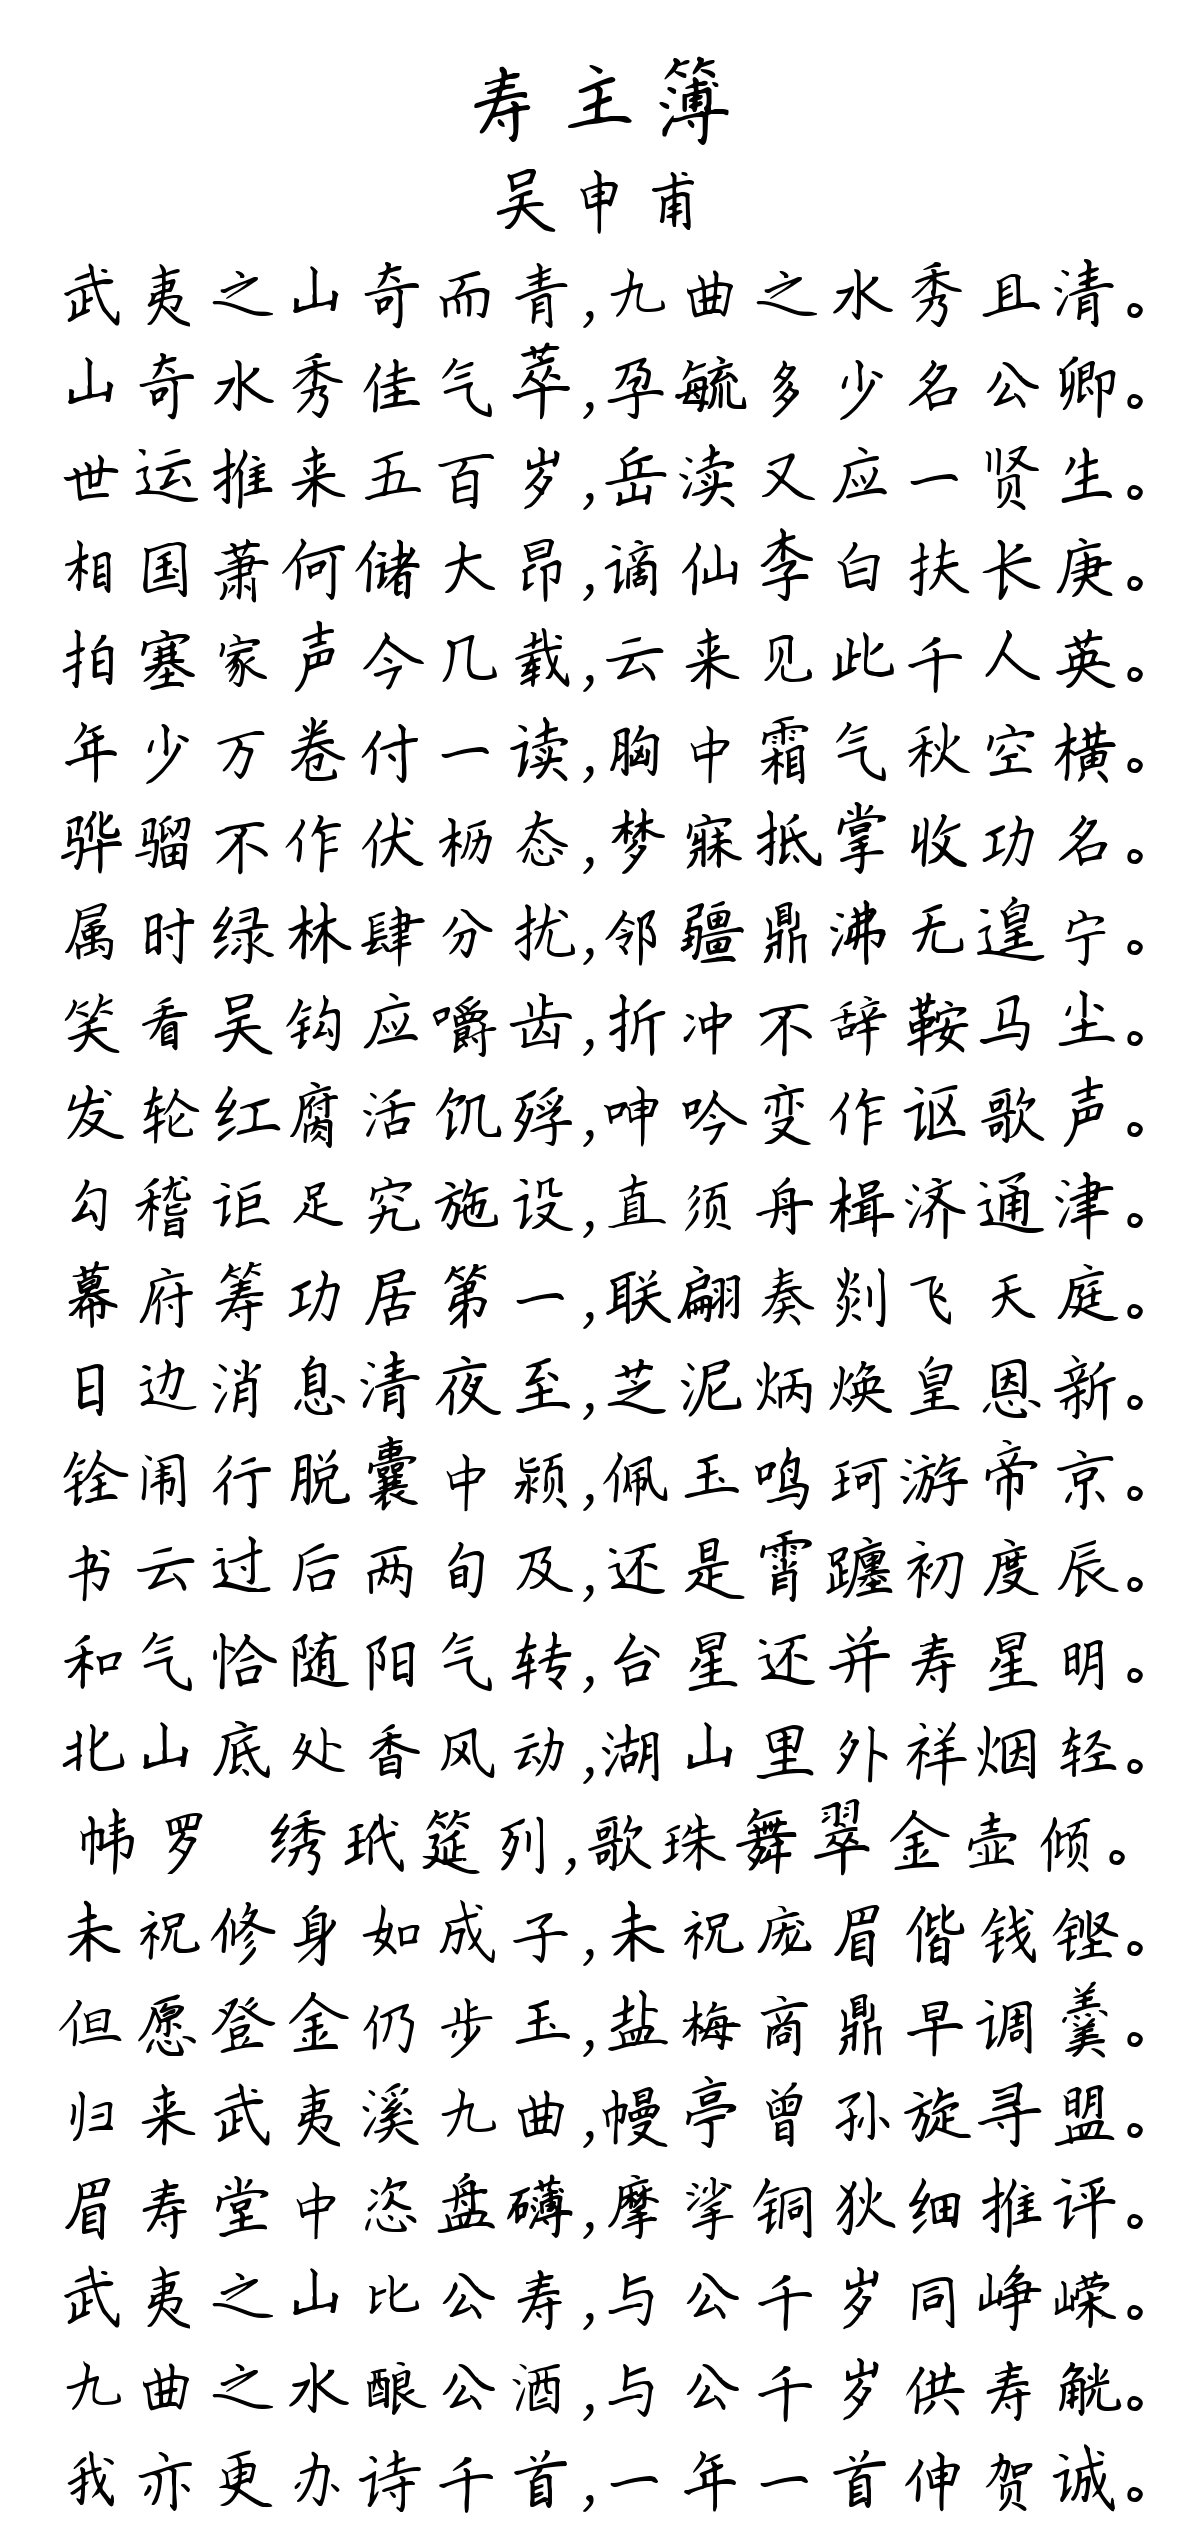 寿主簿
吴申甫
武夷之山奇而青,九曲之水秀且清。
山奇水秀佳气萃,孕毓多少名公卿。
世运推来五百岁,岳渎又应一贤生。
相国萧何储大昂,谪仙李白扶长庚。
拍塞家声今几载,云来见此千人英。
年少万卷付一读,胸中霜气秋空横。
骅骝不作伏枥态,梦寐抵掌收功名。
属时绿林肆分扰,邻疆鼎沸无遑宁。
笑看吴钩应嚼齿,折冲不辞鞍马尘。
发轮红腐活饥殍,呻吟变作讴歌声。
勾稽讵足究施设,直须舟楫济通津。
幕府筹功居第一,联翩奏剡飞天庭。
日边消息清夜至,芝泥炳焕皇恩新。
铨闱行脱囊中颖,佩玉鸣珂游帝京。
书云过后两旬及,还是霄躔初度辰。
和气恰随阳气转,台星还并寿星明。
北山底处香风动,湖山里外祥烟轻。
帏罗 绣玳筵列,歌珠舞翠金壶倾。
未祝修身如成子,未祝庞眉偕钱铿。
但愿登金仍步玉,盐梅商鼎早调羹。
归来武夷溪九曲,幔亭曾孙旋寻盟。
眉寿堂中恣盘礴,摩挲铜狄细推评。
武夷之山比公寿,与公千岁同峥嵘。
九曲之水酿公酒,与公千岁供寿觥。
我亦更办诗千首,一年一首伸贺诚。